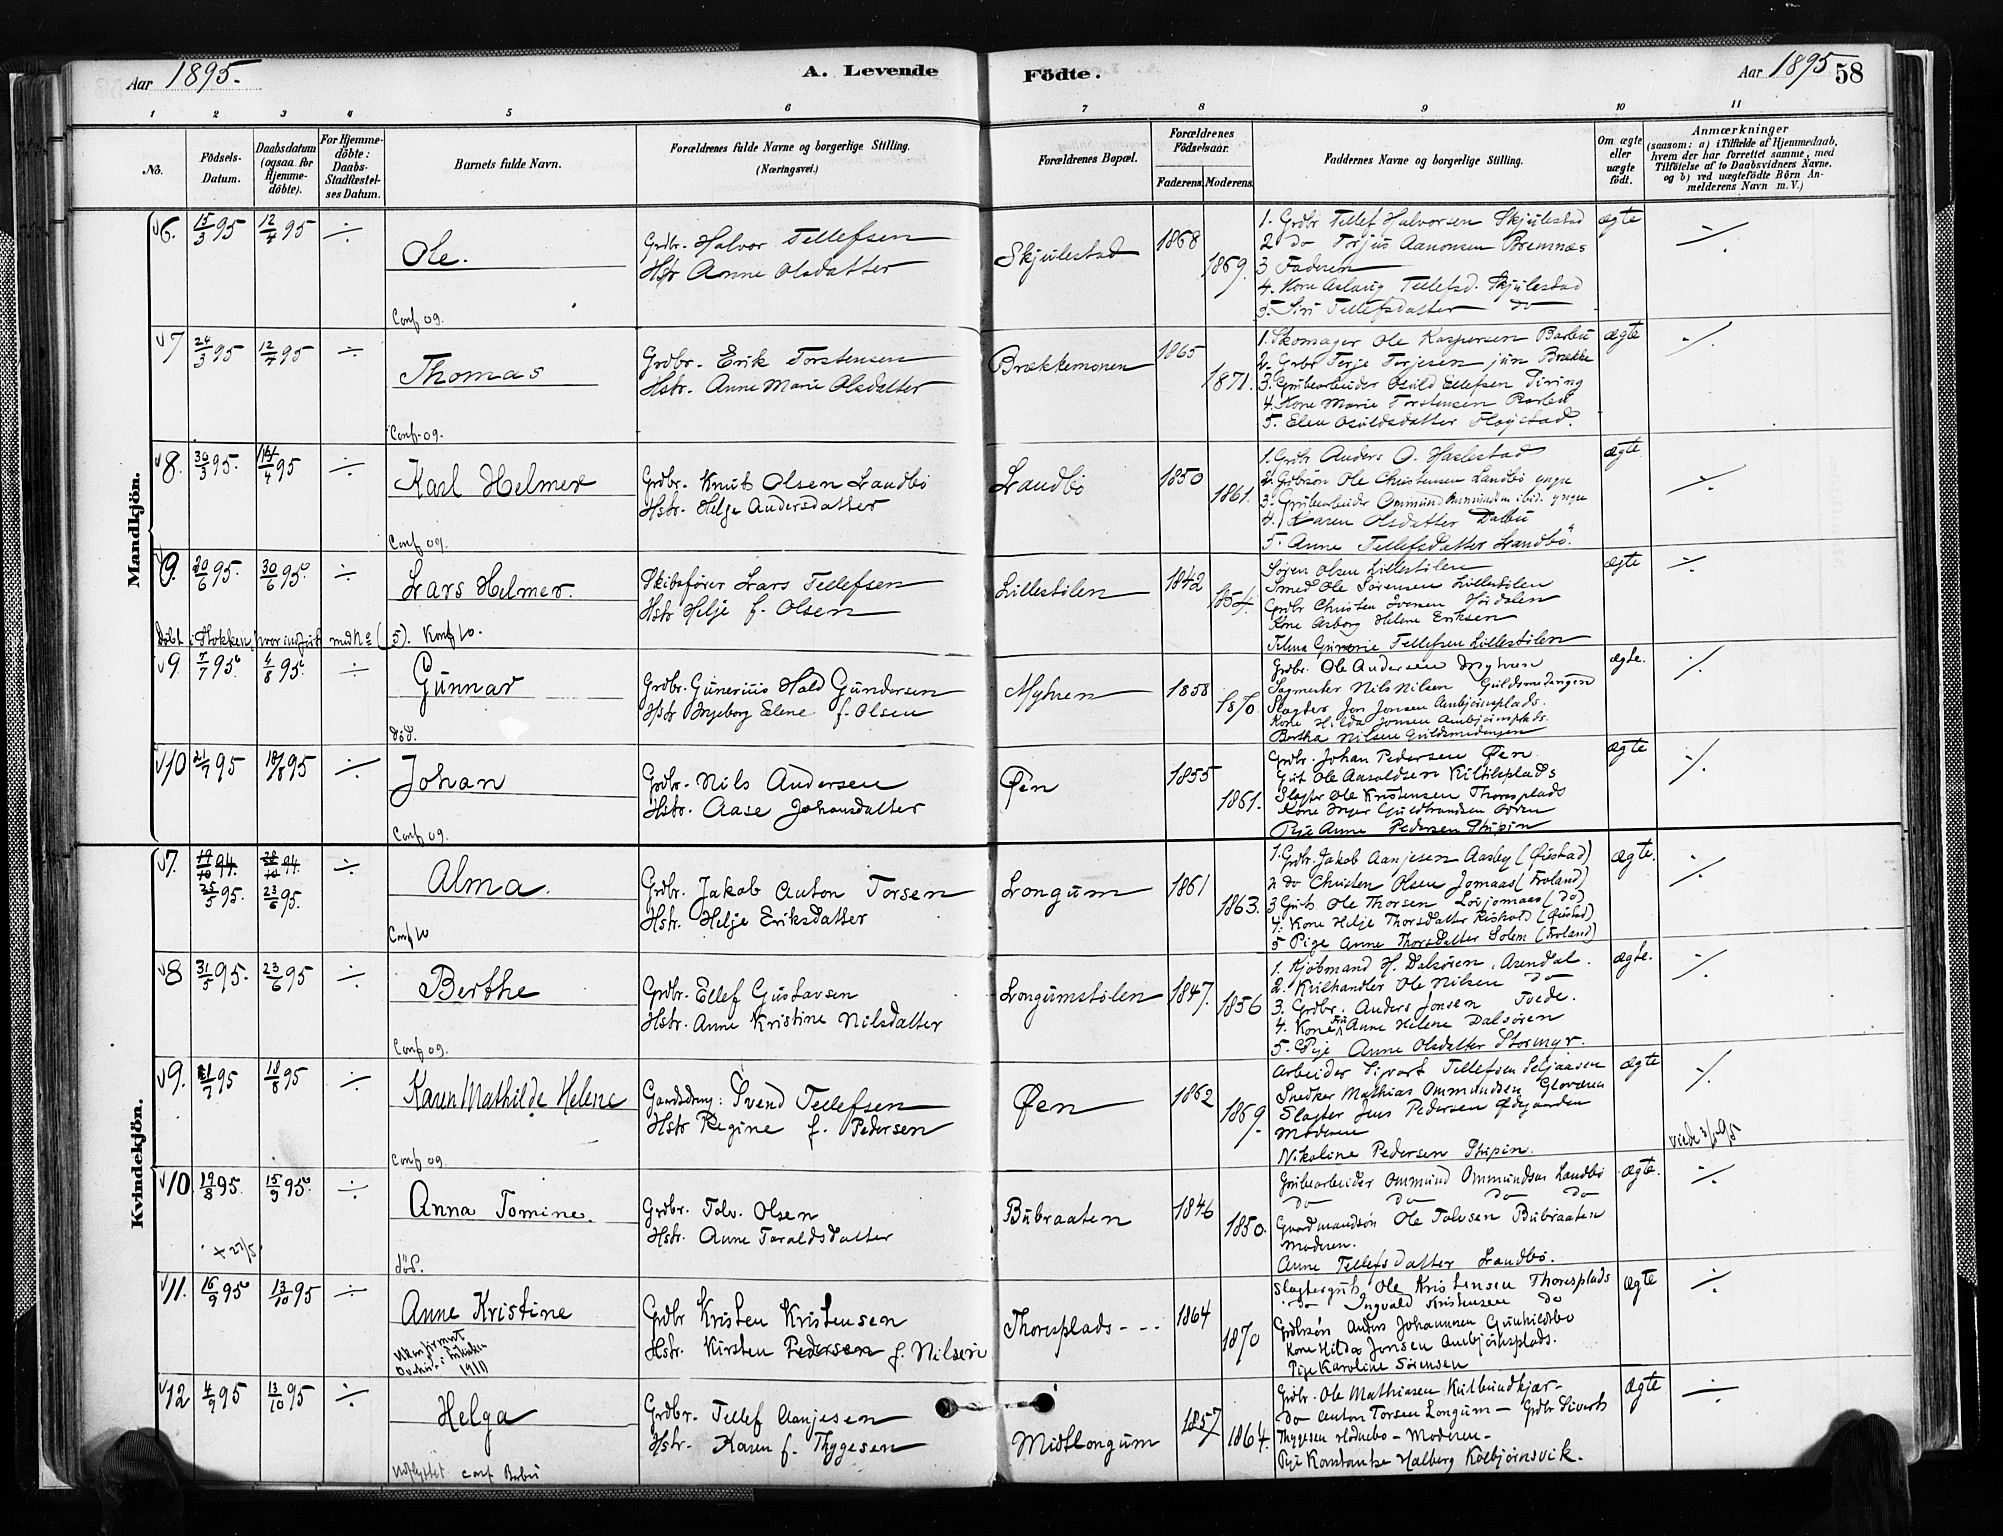 Aar 1895. A. Levende Födte. Aar 1895 58
1 2 3 4 5 6 7 8 9 10 11
No. Födsels-Datum. Daabsdatum (ogsaa for Hjemmedöbte). For Hjemmedöbte: Daabs-Stadfæstelses Datum. Barnets fulde Navn. Forældrenes fulde Navne og borgerlige Stilling. (Næringsvei.) Forældrenes Bopæl. Forældrenes Födselsaar. Faderens. Moderens. Faddernes Navne og borgerlige Stilling. Om ægte eller uægte födt. Anmærkninger (saasom: a) i Tilfælde af Hjemmedaab, hvem der har forrettet samme, med Tilföielse af to Daabsvidners Navne, og b) ved uægtefödte Börn Anmelderens Navn m. V.)
Mandkjön.
6. 15/3 95 12/4 95 ÷ Ole. Grdbr. Halvor Tellefsen Skjulestad 1868 1. Grdbr Tellef Halvorsen Skjulestad ægte ÷
Hstr Anne Olsdatter 1869. 2 do Torjus Aanonsen Bremnæs
3 Faderen
4. Kone Aslaug Tellefsd. Skjulestad
Conf 09. 5. Siri Tellefsdatter do
7 24/3 95 12/4 95 ÷ Thomas Grdbr. Erik Torstensen Brækkemonen 1865 1. Skomager Ole Kaspersen Barbu ægte ÷
Hstr. Anne Marie Olsdatter 1871. 2. Grbr Terje Terjesen jun Brække
3. Grubearbeider Osuld Ellefsen
4. Kone Marie Torstensen Barbu
Conf. 09. 5. Elen Osuldsdatter
8. 30/3 95. 4 95 ÷ Karl Helmer Grdbr. Knut Olsen Landbö Landbö 1850 1. Grdbr Anders O. Haslestad ægte ÷
Hstr. Helje Andersdatter 1861. 2. Ole Christensen Landbö
3. Grubearbeider Ommund
4. Karen Olsdatter
Conf 09. 5. Anne Tellefsdatter Landbö.
9. 20/6 95. 30/6 95. ÷ Lars Helmer. Skibsfører Lars Tellefsen Lillestölen 1842 Søren Olsen Lillestölen ægte ÷
Hstr Helje f. Olsen 1854. Smed Ole Sörensen Lillestölen
Grdbr Christen Iversen
Kone Asborg Helene Eriksen
Döbt i Stokken, hvor indført med No (5). Konf 10. Tellefsen Lillestölen
9 7/7 95 4/8 95. ÷ Gunnar Grdbr. Gunerius Hald Gundersen Myhren 1858 Grdbr. Ole Andersen Myhren ægte. ÷
Hstr Ingeborg Elene f. Olsen 1870. Nils Nilsen Guldsmedengen
Slagter Jon Jonsen Ambjörnsplads.
Kone Hilda Jonsen Ambjörnsplads.
död. Bertha Nilsen Guldsmedengen
10 21/7 95 18/8 95 ÷ Johan Grdbr. Nils Andersen Øen 1855 Grdbr. Johan Pedersen Øen. ægte ÷
Hstr. Aase Johansdatter 1861. Gut Ole Aasaldsen Kittilsplads
Slagter Ole Kristensen Thoresplads
Kone Inger Guldbrandsen
Conf 09. Pige Anne Pedersen
Kvindekjön.
7. 19/10 94. 28/10 94. ÷ Alma. Grdbr. Jakob Anton Torsen Longum 1861 1. Grdbr. Jakob Aanjesen Aasby (Øiestad) ægte. ÷
25/5 95. 23/6 95. Hstr. Helje Eriksdatter 1863. 2 do Christen Olsen Jomaas (Froland)
3 Gut Ole Thorsen Løvjomaas (do)
4. Kone Helje Thorsdatter (Øiestad)
Conf 10 5 Pige Anne Thorsdatter Solem (Froland)
8 31/5 95. 23/6 95 ÷ Berthe Grdbr. Ellef Gustavsen Longumstölen 1847. 1. Kjöbmand H. Dalsören, Arendal. ægte. ÷
Hstr. Anne Kristine Nilsdatter 1856 2. Kvilhandler Ole Nilsen do
3. Grdbr. Anders Jonsen Tvede.
4. Kone Fru Anne Helene Dalsören
Conf 09. 5. Pige Anne Olsdatter Stormyr.
9. 7 95 18/8 95 ÷ Karen Mathilde Helene Gaardsdrg: Svend Tellefsen Øen 1862 Arbeider Sivort Tellefsen Seljaasen ægte ÷
Hstr Regine f. Pedersen 1869. Snedker Mathias Ommundsen
Slagter Jens Pedersen Ødegaarden
Moderen
Conf 09. Nikoline Pedersen
10 19/8 95. 15/9 95. ÷ Anna Tomine. Grdbr. Tolv. Olsen Bubraaten 1846 Grubearbeider Ommund Ommundsen Landbö ægte. ÷
Hstr. Anne Taraldsdatter 1850. do do do do
Gaardmandsön Ole Tolvsen Bubraaten
+ 27/5. Moderen.
död. Anne Tellefsdatter Landbö.
11. 16/9 95 13/10 95 ÷ Anne Kristine Grdbr Kristen Kristensen Thoresplads 1864 Slagtergut Ole Kristensen Thoresplads ægte ÷
Hstr. Kirsten Pedersen f. Nilsen 1870 do Ingvald Kristensen do
Grdbrsön Anders Johannsen Gunhildsbo
Kone Hilda Jonsen Ambjörnsplads.
1910 Pige Karoline Sörensen
12 4/9 95 13/10 95 ÷ Helga Grdbr. Tellef Aanjesen Midtlongum 1857 Grdbr. Ole Mathiasen ægte ÷
Hstr. Karen f. Thygesen 1864. do Anton Torsen Longum - Grdbr Siverts
Thygesen - Moderen -
Udflyttet conf Barbu Pige Konstanse Halberg Kolbjörnsvik.